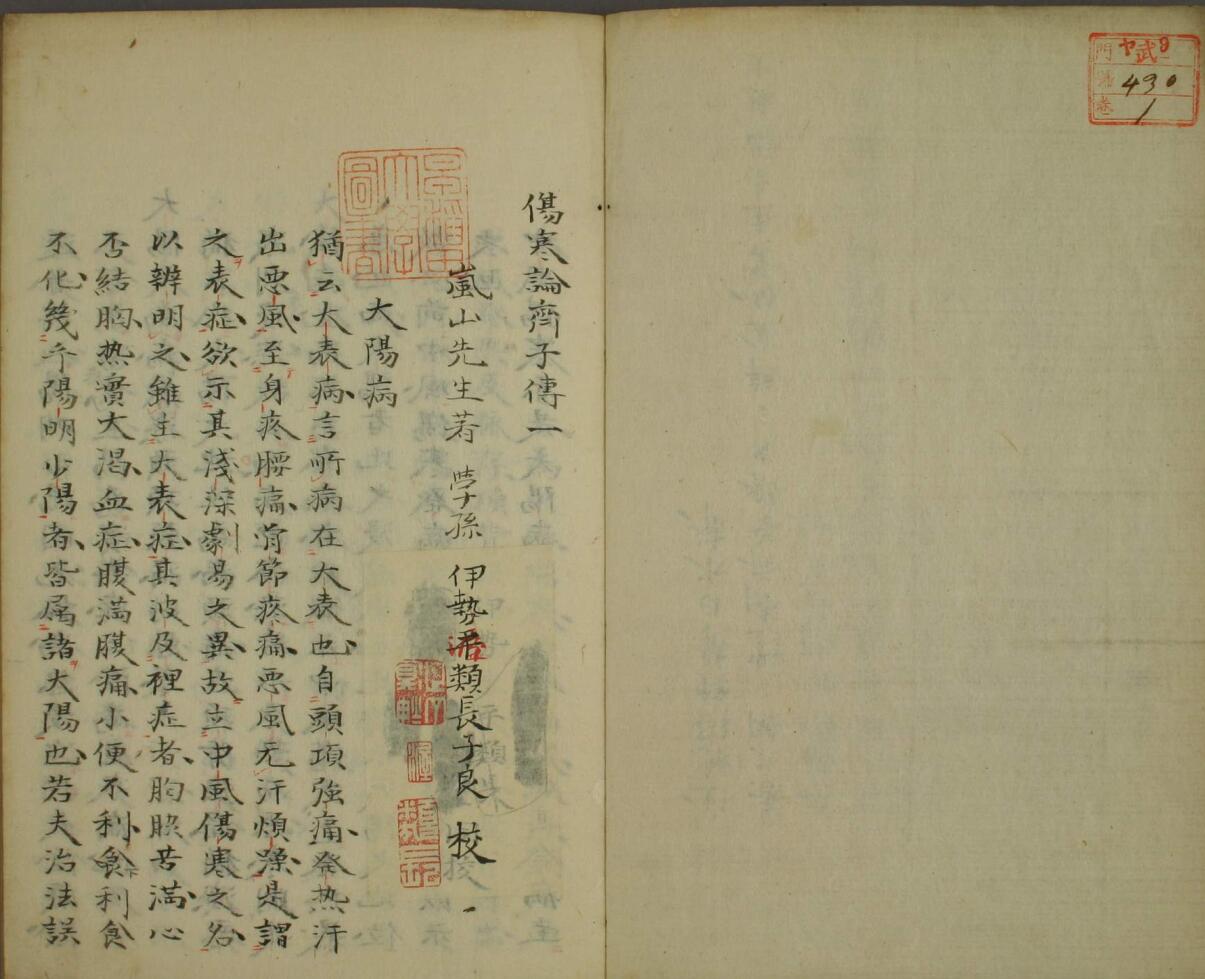 門 ヤ武9
號 430
卷 1
傷寒論齊子傳一
嵐山先生著 学孫 伊勢 類長子良 校
大陽病
猶云大表病言所病在大表也自頭項強痛発热汗
出悪風至身疼腰痛骨節疼痛悪風无汗煩躁是謂
之表症欲示其淺深劇易之異故立中風傷寒之名
以辨明之雖主大表症其波及裡症者胸脇苦満心
否結胸热實大渇血症腹満腹痛小便不利食利食
不化幾乎陽明少陽者皆属諸大陽也若夫治法誤